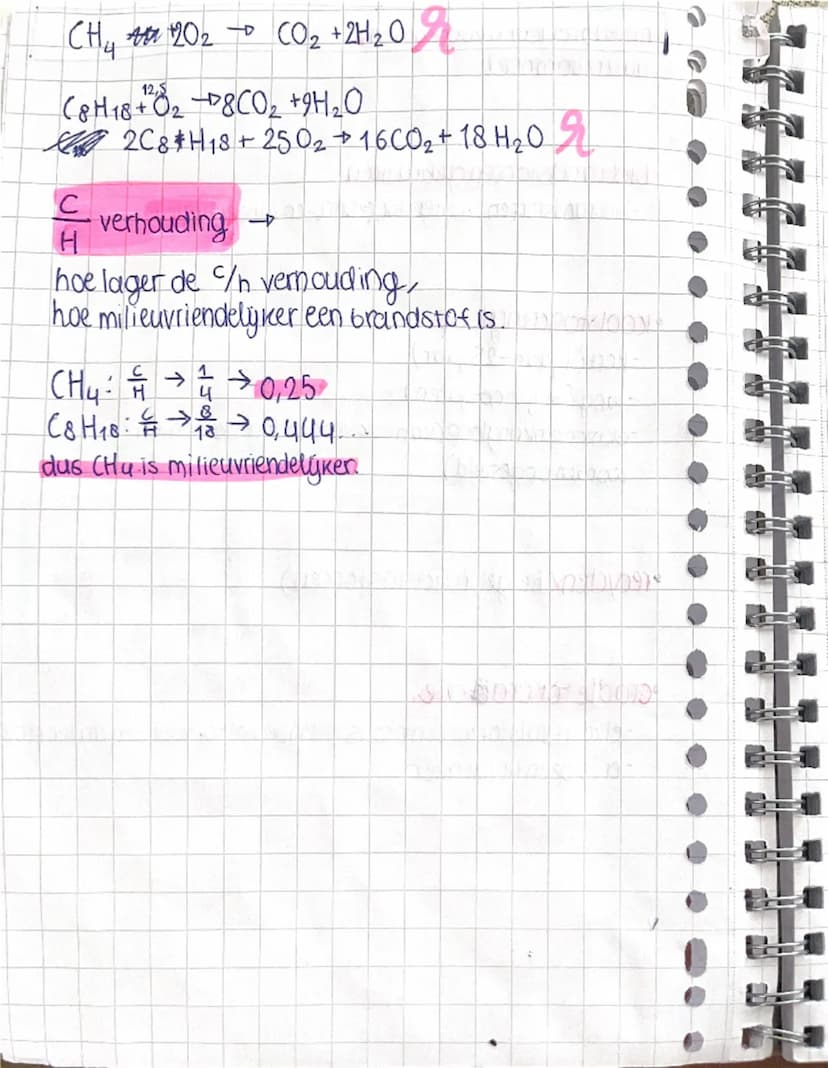 CH4 + 2O2 → CO2 + 2H2O R
12,5
C8H18 + O2 → 8CO2 + 9H2O
2C8H18 + 25O2 → 16CO2 + 18H2O R
C/H verhouding →
hoe lager de C/H verhouding,
hoe milieuvriendelijker een brandstof is.
CH4: C/H → 1/4 → 0,25
C8H18: C/H → 8/18 → 0,444...
dus CH4 is milieuvriendelijker.